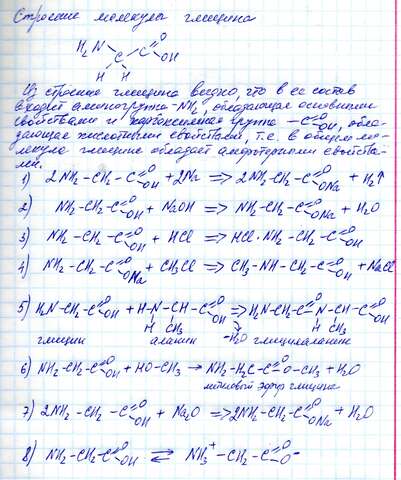 Строение молекулы глицина
H₂N C C=O OH
H H
Из строения глицина видно, что в ее состав
входит аминогруппа -NH₂, обладающая основными
свойствами и карбоксильная группа -C=O OH, обла-
дающая кислотными свойствами, т.е. в общем мо-
лекула глицина обладает амфотерными свойства-
ми.
1) 2NH₂-CH₂-C=O OH + 2Na => 2NH₂-CH₂-C=O ONa + H₂↑
2) NH₂-CH₂-C=O OH + NaOH => NH₂-CH₂-C=O ONa + H₂O
3) NH₂-CH₂-C=O OH + HCl => HCl·NH₂-CH₂-C=O OH
4) NH₂-CH₂-C=O ONa + CH₃Cl => CH₃-NH-CH₂-C=O OH + NaCl
5) H₂N-CH₂-C=O OH + H-N-CH-C=O OH => H₂N-CH₂-C=O N-CH-C=O OH
H CH₃ H CH₃
глицин аланин -H₂O глицилаланин
6) NH₂-CH₂-C=O OH + HO-CH₃ → NH₂-H₂C-C=O O-CH₃ + H₂O
метиловый эфир глицина
7) 2NH₂-CH₂-C=O OH + Na₂O => 2NH₂-CH₂-C=O ONa + H₂O
8) NH₂-CH₂-C=O OH ⇄ NH₃⁺-CH₂-C=O O⁻